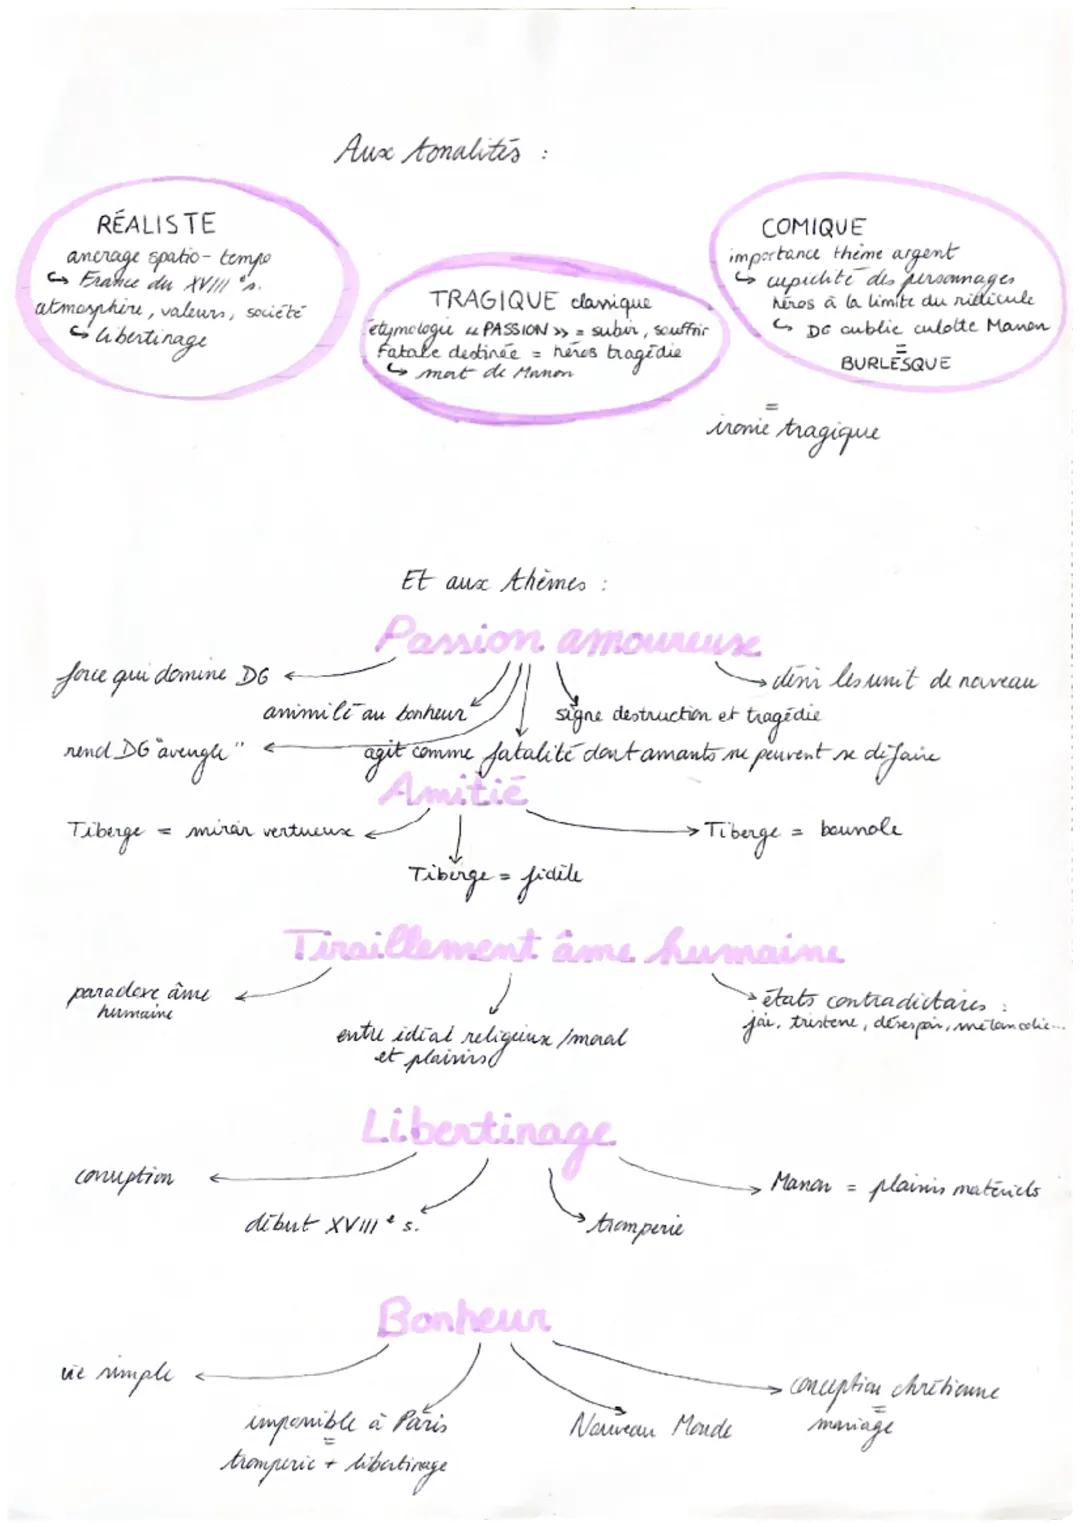 Aux tonalités :
RÉALISTE
ancrage spatio-tempo
↳ France du XVIIIe s.
atmosphère, valeurs, société
↳ libertinage
TRAGIQUE classique
étymologie « PASSION » = subir, souffrir
Fatale destinée = héros tragédie
↳ mort de Manon
COMIQUE
importance thème argent
↳ cupidité des personnages
héros à la limite du ridicule
↳ DG oublie culotte Manon
=
BURLESQUE
=
ironie tragique
Et aux thèmes :
Passion amoureuse
force qui domine DG
désir les unit de nouveau
animilé au bonheur
signe destruction et tragédie
rend DG "aveugle"
agit comme fatalité dont amants ne peuvent se défaire
Amitié
Tiberge = miroir vertueux
Tiberge = boussole
Tiberge = fidèle
Tiraillement âme humaine
paradoxe âme
humaine
entre idéal religieux/moral
et plaisirs
états contradictoires :
joie, tristesse, désespoir, mélancolie...
Libertinage
corruption
Manon = plaisirs matériels
début XVIIIe s.
tromperie
Bonheur
vie simple
conception chrétienne
=
mariage
impossible à Paris
=
tromperie + libertinage
Nouveau Monde